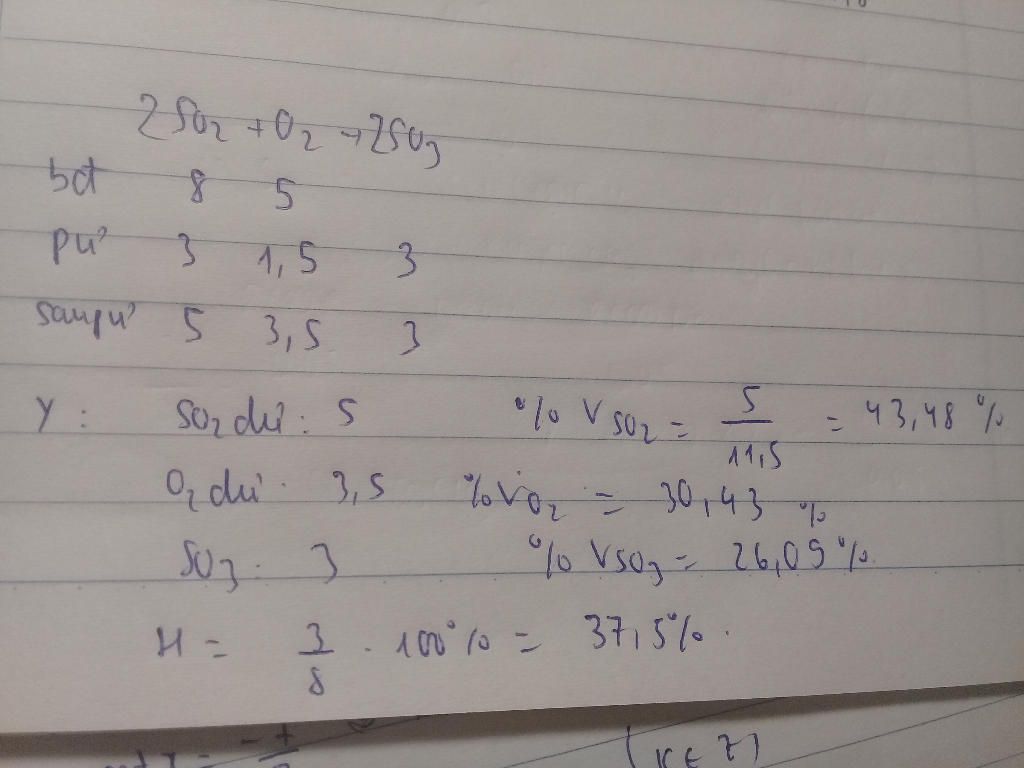 2SO₂ + O₂ → 2SO₃
bđ 8 5
pứ 3 1,5 3
sau pứ 5 3,5 3
Y : SO₂ dư : 5 % V SO₂ = 5/11,5 = 43,48 %
O₂ dư : 3,5 % V O₂ = 30,43 %
SO₃ : 3 % V SO₃ = 26,09 %.
H = 3/8 . 100% = 37,5% .
(k ∈ Z)